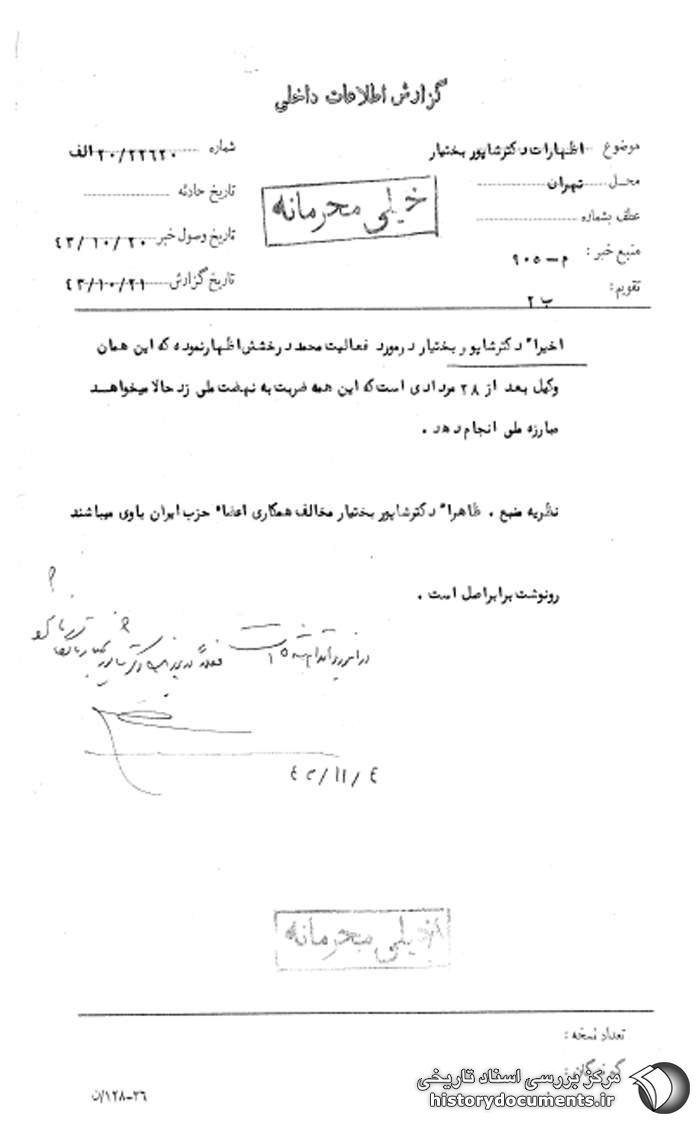 گزارش اطلاعات داخلی
موضوع اظهارات دکترشاپور بختیار
شماره ۲۰/۲۲۶۲۰ الف
محل تهران
تاریخ حادثه
عطف بشماره
تاریخ وصول خبر ۴۳/۱۰/۲۰
منبع خبر : م-۹۰۵
تاریخ گزارش ۴۳/۱۰/۲۱
تقویم : ب ۲
خیلی محرمانه
اخیرا" دکترشاپور بختیار درمورد فعالیت محمد درخشش اظهارنموده که این همان
وکیل بعد از ۲۸ مردادی است که این همه ضربت به نهضت ملی زد حالا میخواهد
مبارزه ملی انجام دهد .
نظریه منبع . ظاهرا" دکترشاپور بختیار مخالف همکاری اعضاء حزب ایران باوی میباشند
رونوشت برابراصل است .
؟
۴۳/۱۱/۴
خیلی محرمانه
تعداد نسخه :
گیرندگان :
۳۶-۱۲۸/ن
مرکز بررسی اسناد تاریخی
historydocuments.ir